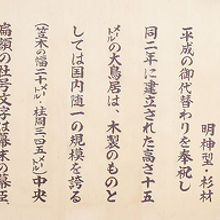 明神型・杉材
一平成の御代替わりを奉祝し
同二年に建立された高さ十五
メートルの大鳥居は、木製のものと
しては国内随一の規模を誇る
(笠木の幅二十三メートル・柱周三四五メートル)中央
扁額の社号文字は幕末の幕臣